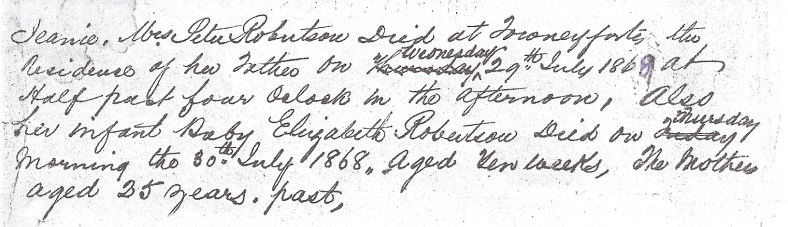 Jeanie. Mrs Peter Robertson Died at the
Residence of her Father on Wednesday, 29th July 1868 at
Half past four Oclock in the afternoon, Also
her infant Baby Elizabeth Robertson Died on Thursday
Morning the 30th July 1868,, Aged Ten weeks, The Mother
aged 25 years. past,